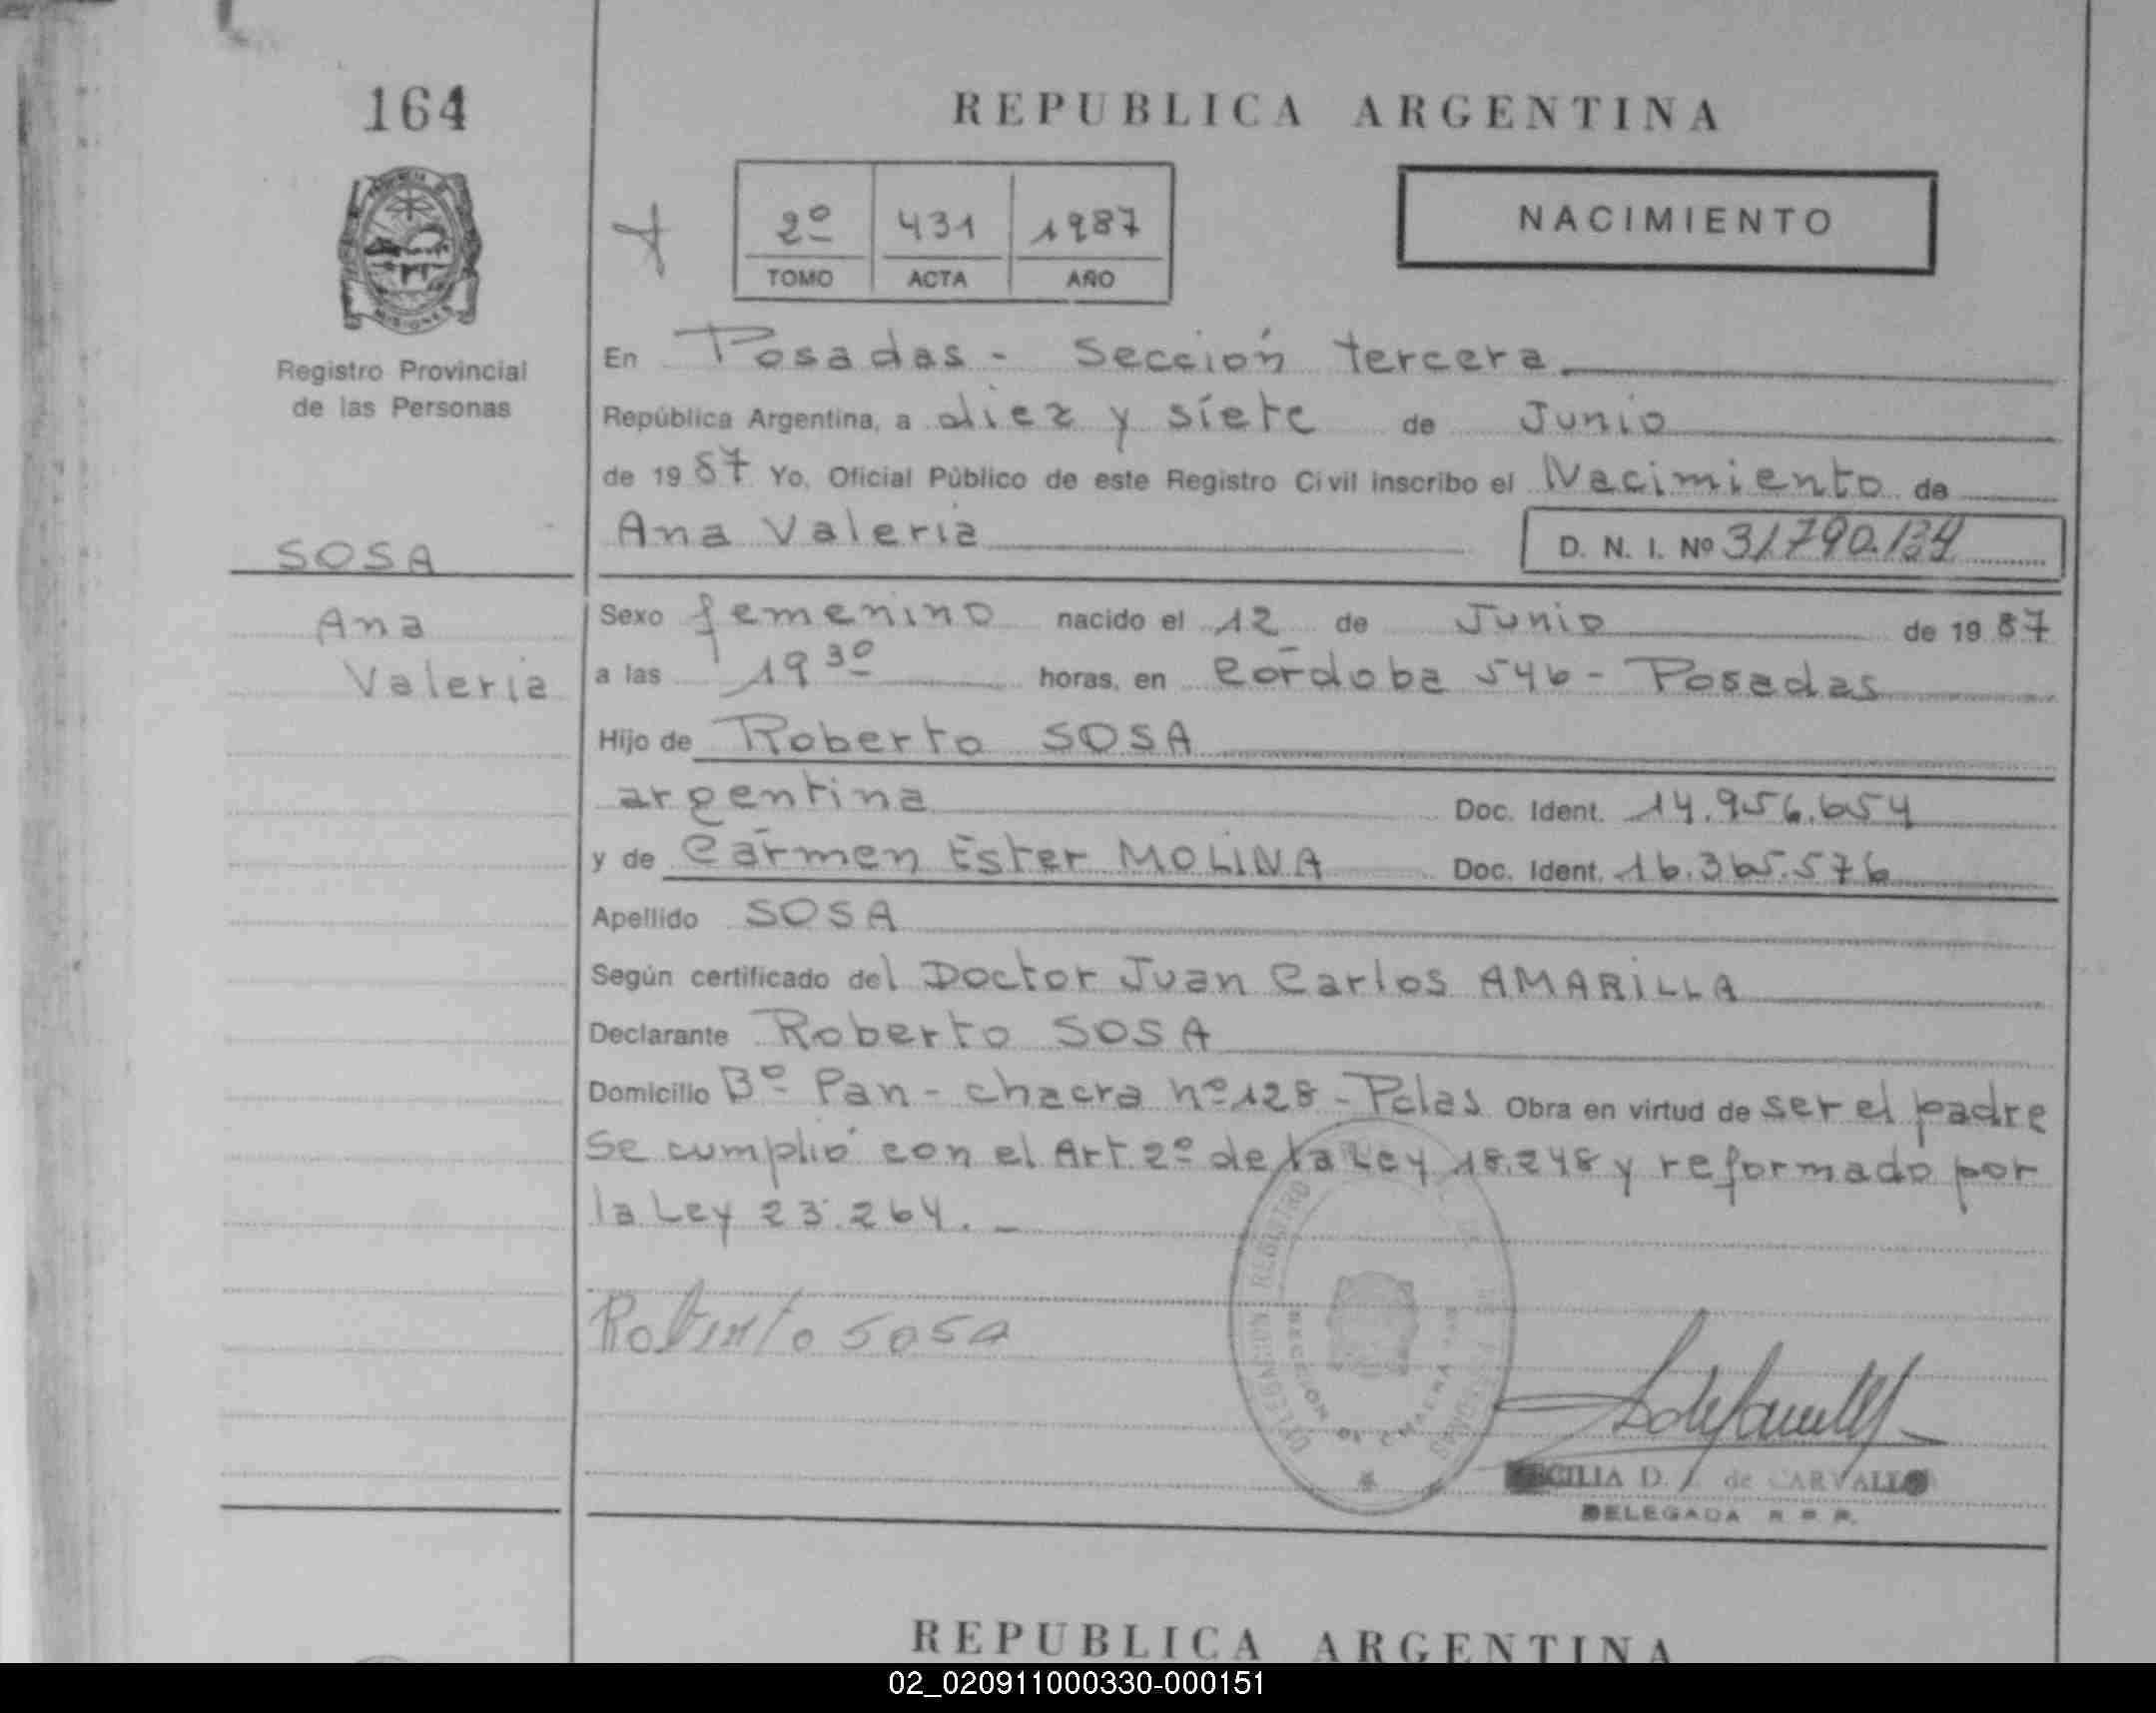 164
REPUBLICA ARGENTINA
2º 431 1987
TOMO ACTA AÑO
NACIMIENTO
MISIONES
Registro Provincial
de las Personas
En Posadas - Sección tercera
República Argentina, a diez y siete de Junio
de 1987 Yo, Oficial Público de este Registro Civil inscribo el Nacimiento de
Ana Valeria D. N. I. Nº 31.790.134
SOSA
Ana
Valeria
Sexo femenino nacido el 12 de Junio de 1987
a las 19 30 horas, en Córdoba 546 - Posadas
Hijo de Roberto SOSA
argentina Doc. Ident. 14.956.654
y de Cármen Ester MOLINA Doc. Ident. 16.365.576
Apellido SOSA
Según certificado del Doctor Juan Carlos AMARILLA
Declarante Roberto SOSA
Domicilio Bº Pan - chacra nº 128 - Pdas Obra en virtud de ser el padre
Se cumplió con el Art. 2º de la Ley 18.248 y reformado por
la Ley 23.264. -
Roberto Sosa
DELEGACION REGISTRO
CILIA D. de CARVALLO
DELEGADA R P P.
REPUBLICA ARGENTINA
02_020911000330-000151